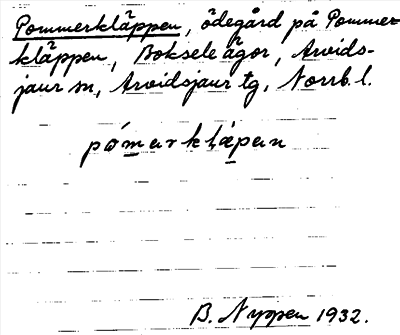 Pommerkläppen, ödegård på Pommer-
kläppen, Boksele ägor, Arvids-
jaur sn, Arvidsjaur tg, Norrb. l.
pómerklä̀pen
B. Nyppen 1932.